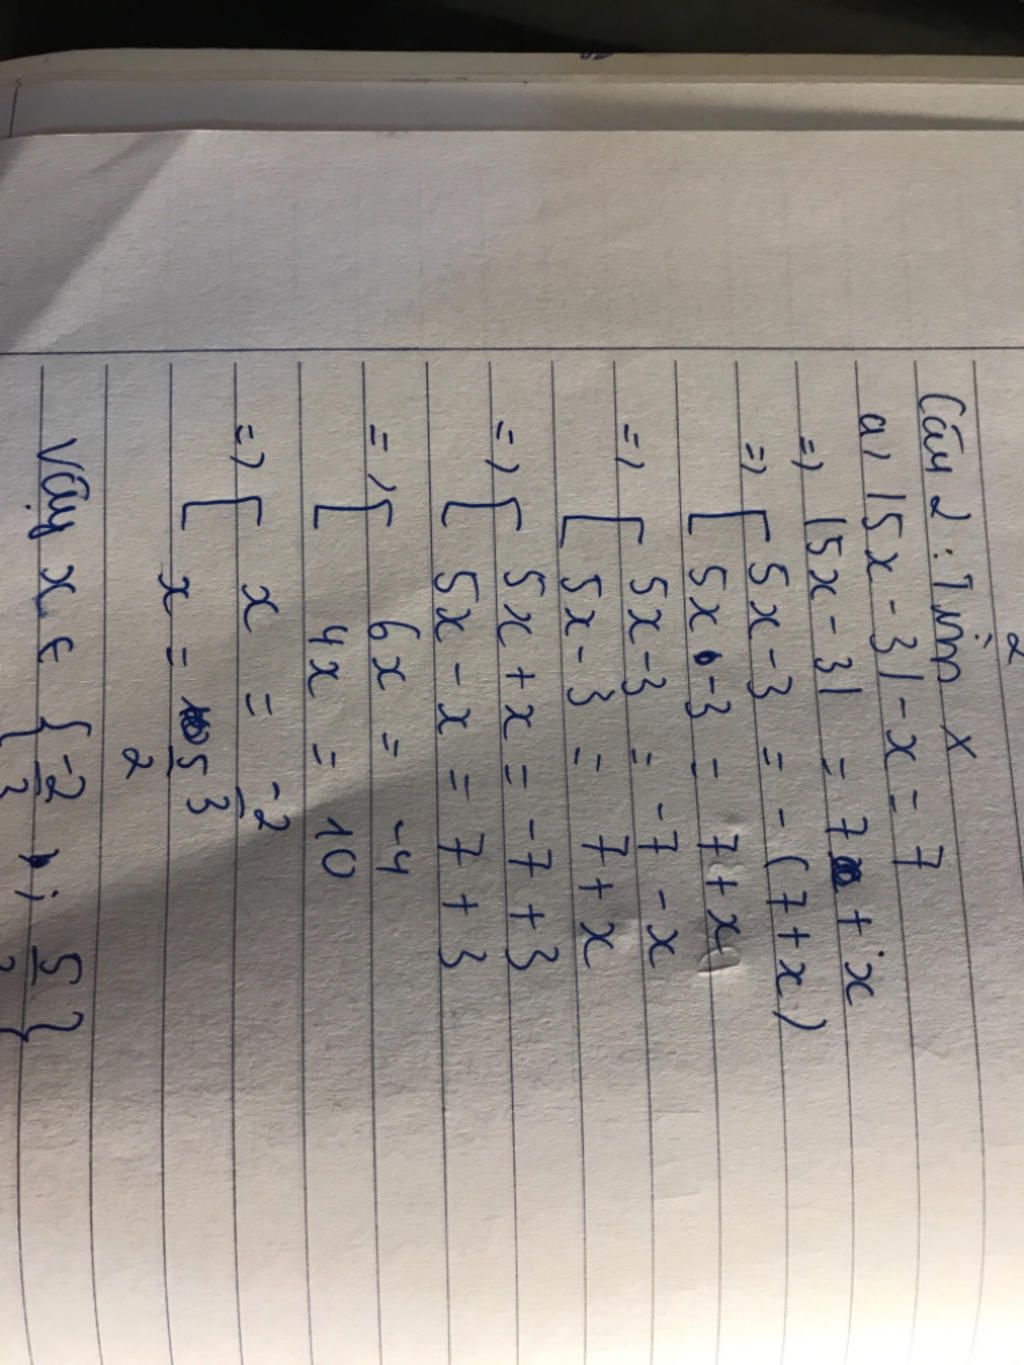 2
Câu 2: Tìm x
a) |5x - 3| - x = 7
=> |5x - 3| = 7 + x
=> [ 5x - 3 = - (7 + x)
[ 5x - 3 = 7 + x
=> [ 5x - 3 = -7 - x
[ 5x - 3 = 7 + x
=> [ 5x + x = -7 + 3
[ 5x - x = 7 + 3
=> [ 6x = -4
[ 4x = 10
=> [ x = -2/3
[ x = 5/2
Vậy x ∈ { -2/3 ; 5/2 }